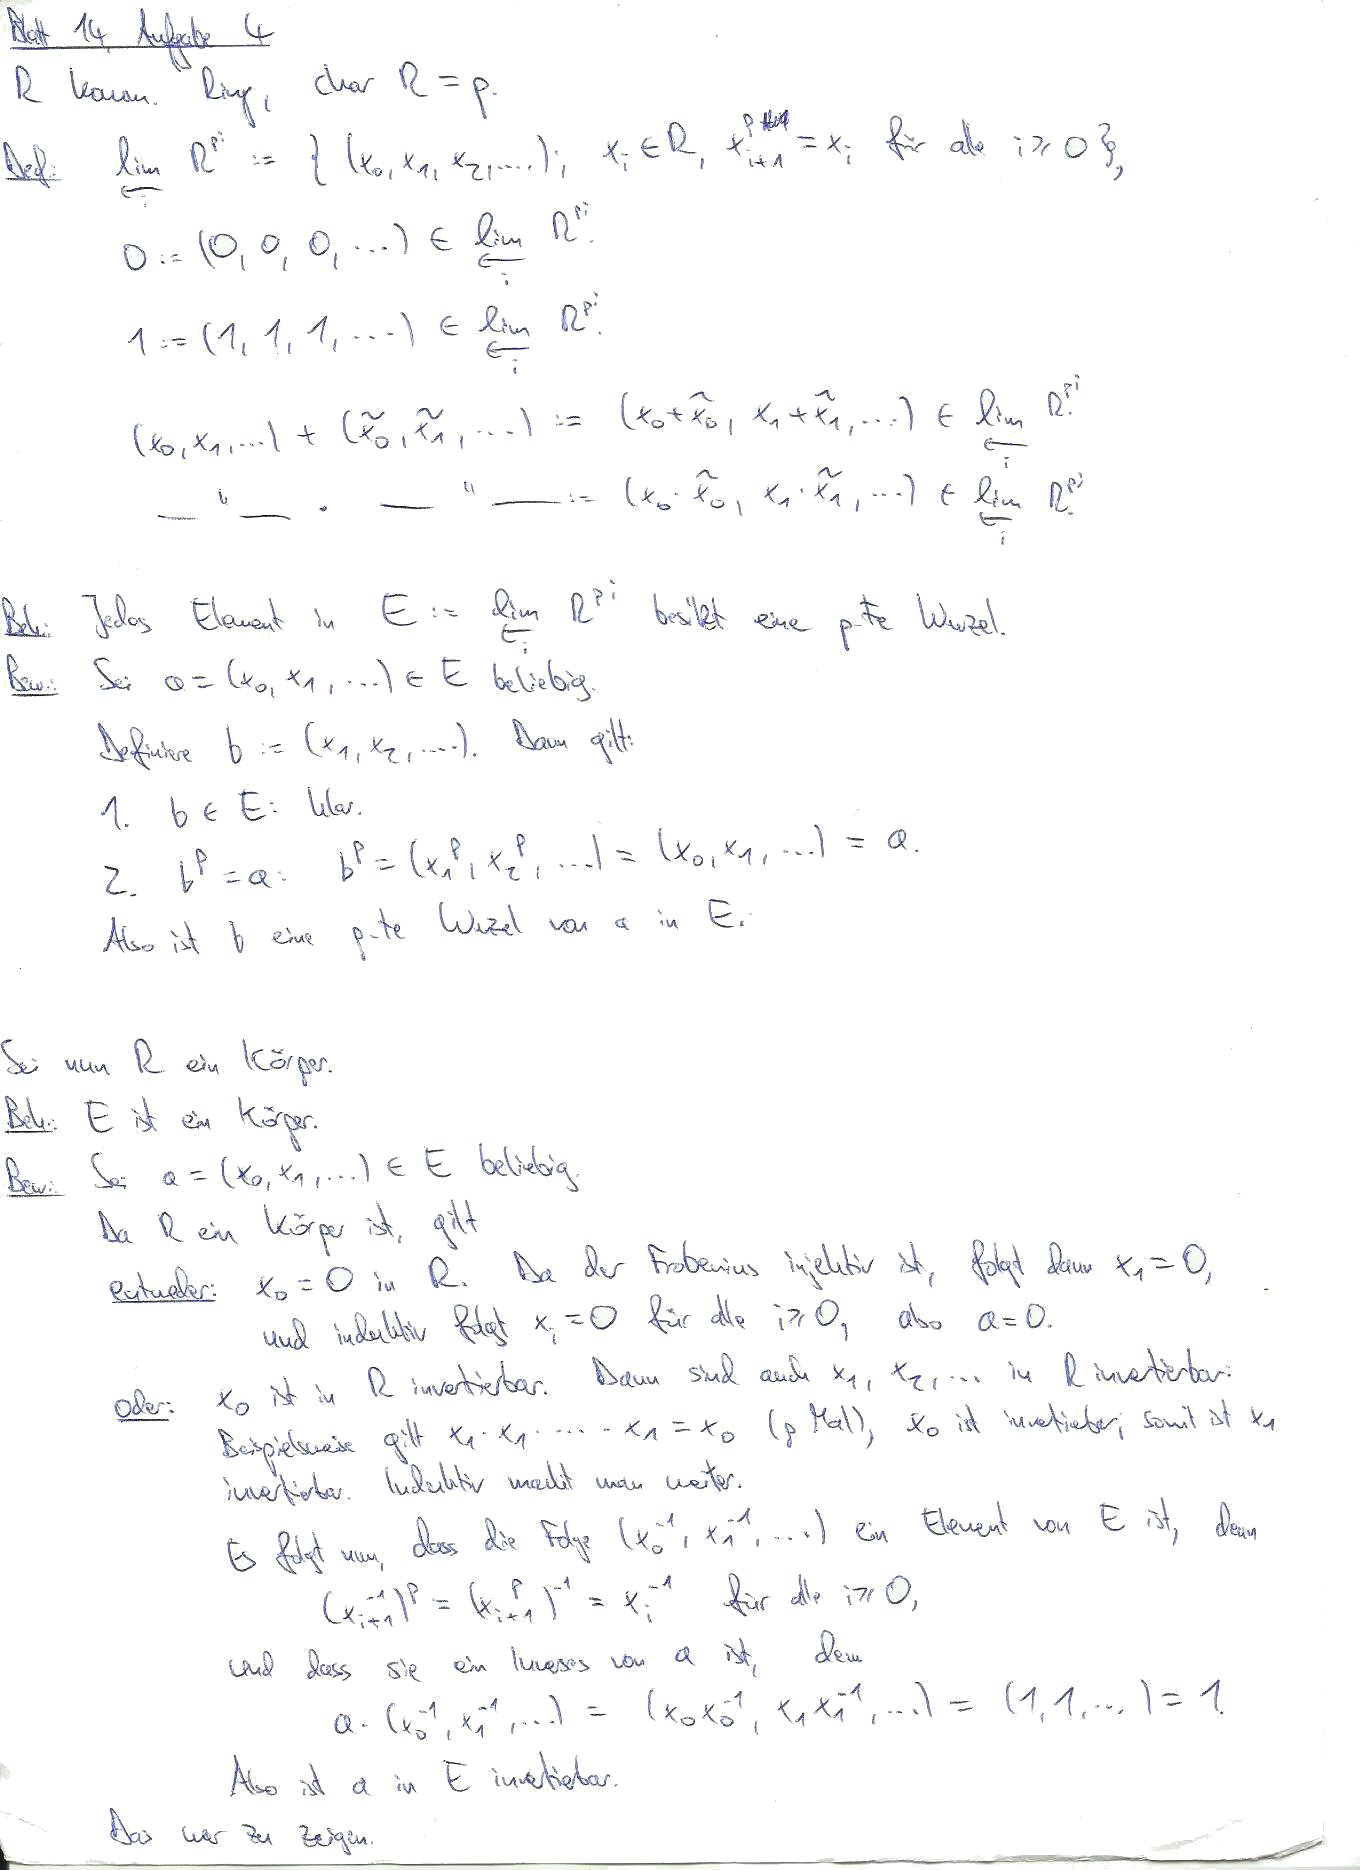 Blatt 14, Aufgabe 4
R komm. Ring, char R = p.
Def.: lim R^{p^i} := { (x₀, x₁, x₂, ....); xᵢ ∈ R, x_{i+1}^p = xᵢ für alle i ≥ 0 },
←
i
0 := (0, 0, 0, ...) ∈ lim R^{p^i}.
←
i
1 := (1, 1, 1, ...) ∈ lim R^{p^i}.
←
i
(x₀, x₁, ...) + (x̃₀, x̃₁, ...) := (x₀ + x̃₀, x₁ + x̃₁, ...) ∈ lim R^{p^i}.
←
i
— " — · — " — := (x₀ · x̃₀, x₁ · x̃₁, ...) ∈ lim R^{p^i}.
←
i
Beh.: Jedes Element in E := lim R^{p^i} besitzt eine p-te Wurzel.
←
i
Bew.: Sei a = (x₀, x₁, ...) ∈ E beliebig.
Definiere b := (x₁, x₂, ....). Dann gilt:
1. b ∈ E: klar.
2. b^p = a: b^p = (x₁^p, x₂^p, ...) = (x₀, x₁, ...) = a.
Also ist b eine p-te Wurzel von a in E.
Sei nun R ein Körper.
Beh.: E ist ein Körper.
Bew.: Sei a = (x₀, x₁, ...) ∈ E beliebig.
Da R ein Körper ist, gilt
entweder: x₀ = 0 in R. Da der Frobenius injektiv ist, folgt dann x₁ = 0,
und induktiv folgt xᵢ = 0 für alle i ≥ 0, also a = 0.
oder: x₀ ist in R invertierbar. Dann sind auch x₁, x₂, ... in R invertierbar:
Beispielsweise gilt x₁ · x₁ · ... · x₁ = x₀ (p Mal), x₀ ist invertierbar; somit ist x₁
invertierbar. Induktiv macht man weiter.
Es folgt nun, dass die Folge (x₀⁻¹, x₁⁻¹, ...) ein Element von E ist, denn
(x_{i+1}⁻¹)^p = (x_{i+1}^p)⁻¹ = xᵢ⁻¹ für alle i ≥ 0,
und dass sie ein Inverses von a ist, denn
a · (x₀⁻¹, x₁⁻¹, ...) = (x₀x₀⁻¹, x₁x₁⁻¹, ...) = (1, 1, ...) = 1.
Also ist a in E invertierbar.
Das war zu zeigen.